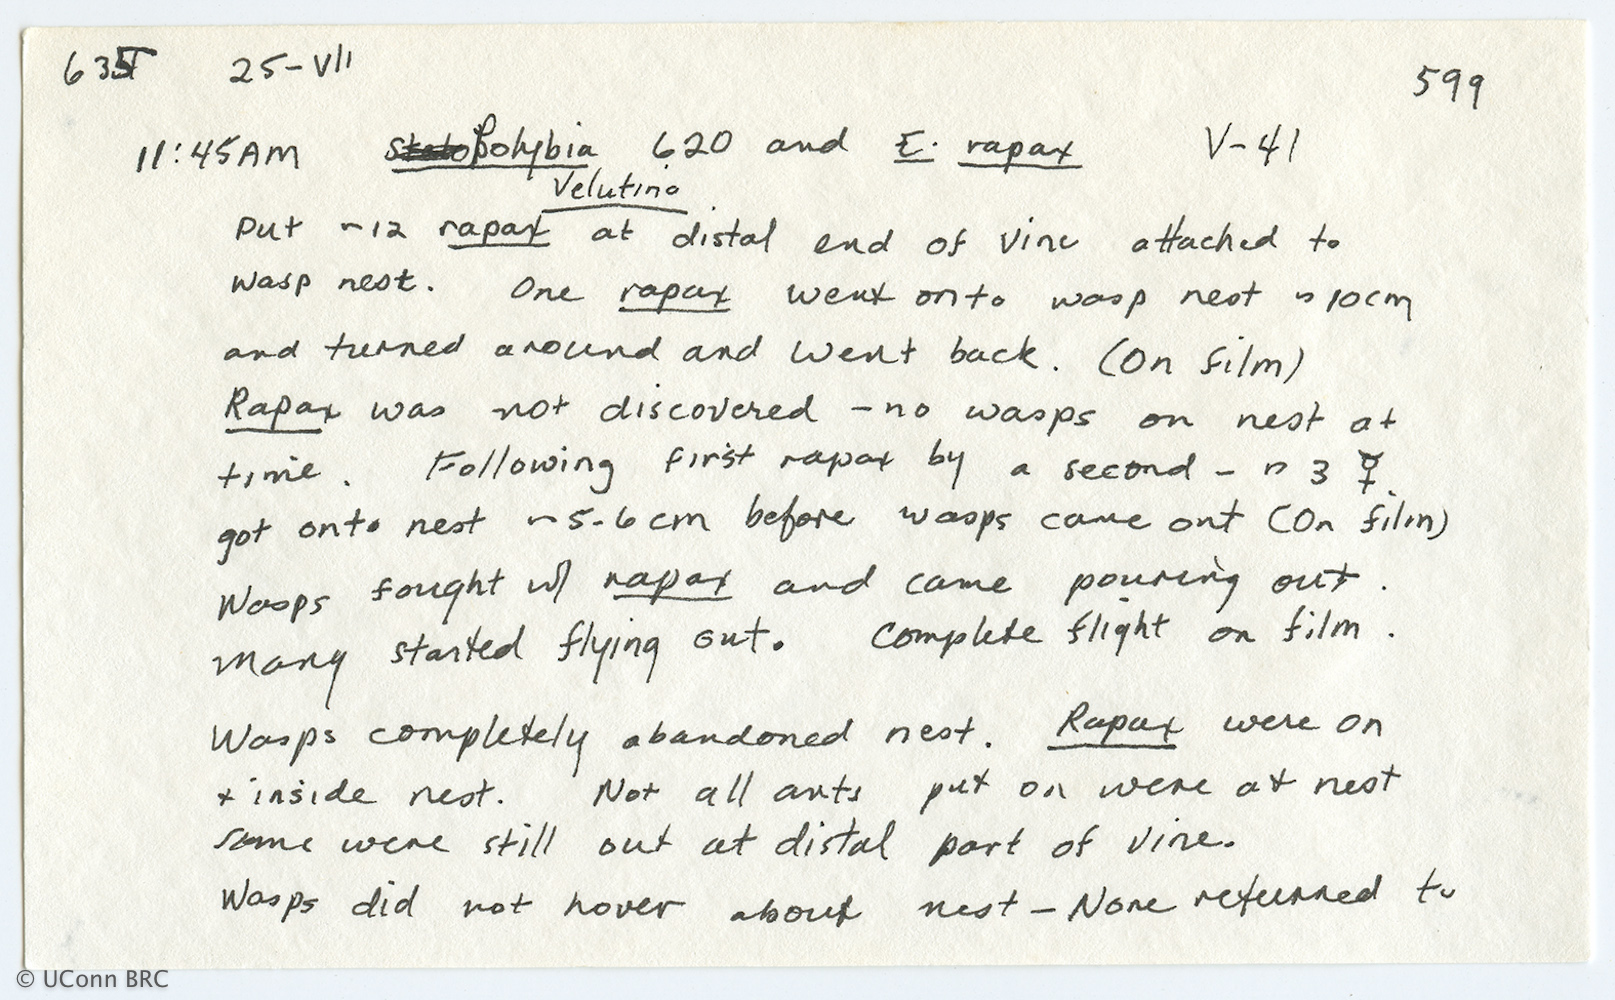 635T 25-VII 599
11:45AM Polybia 620 and E. rapax V-41
Velutina
Put ~12 rapax at distal end of vine attached to
wasp nest. One rapax went onto wasp nest ~10cm
and turned around and went back. (On film)
Rapax was not discovered - no wasps on nest at
time. Following first rapax by a second - ~ 3 ☿
got onto nest ~5-6 cm before wasps came out (On film)
Wasps fought w/ rapax and came pouring out.
Many started flying out. Complete flight on film.
Wasps completely abandoned nest. Rapax were on
+ inside nest. Not all ants put on were at nest
some were still out at distal part of vine.
Wasps did not hover about nest - None returned to
© UConn BRC